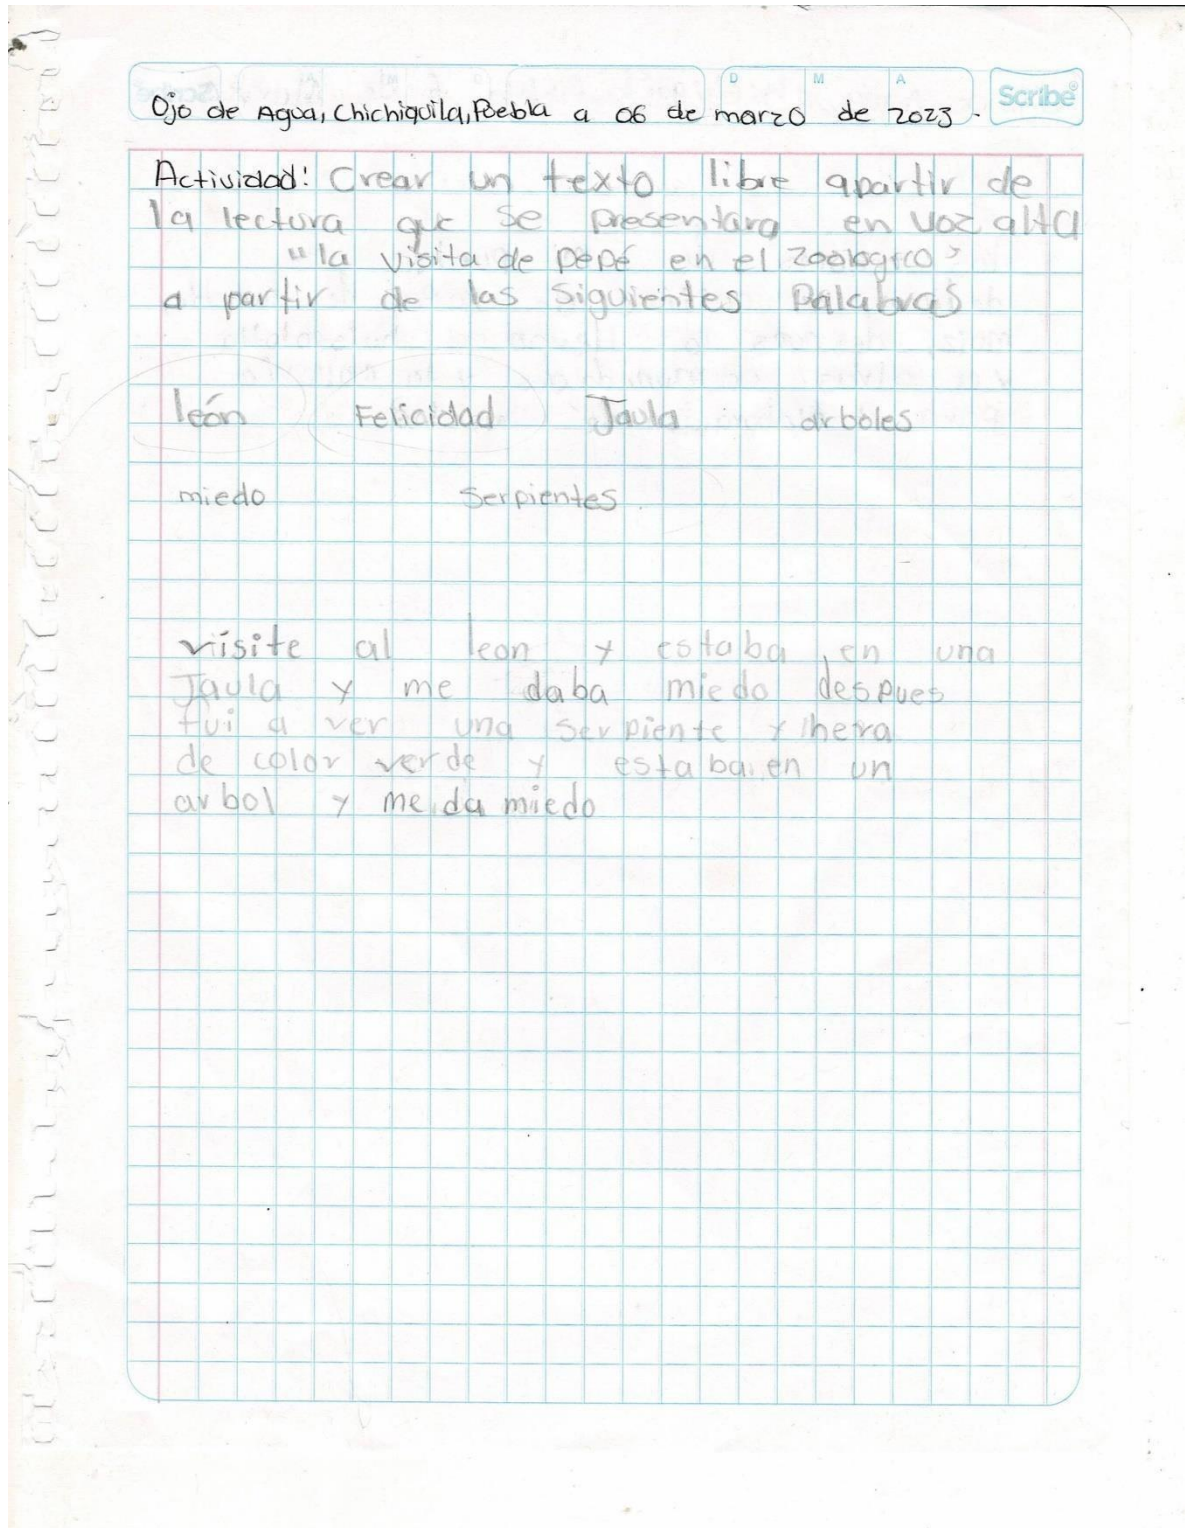 D M A
Scribe
Ojo de Agua, Chichiquila, Puebla a 06 de marzo de 2023.
Actividad: Crear un texto libre apartir de
la lectura que se presentara en voz alta
"la visita de pepé en el zoologico"
a partir de las siguientes Palabras
león Felicidad Jaula arboles
miedo Serpientes.
visite al leon y estaba en una
Jaula y me daba miedo despues
fui a ver una serpiente y hera
de color verde y estaba en un
arbol y me da miedo